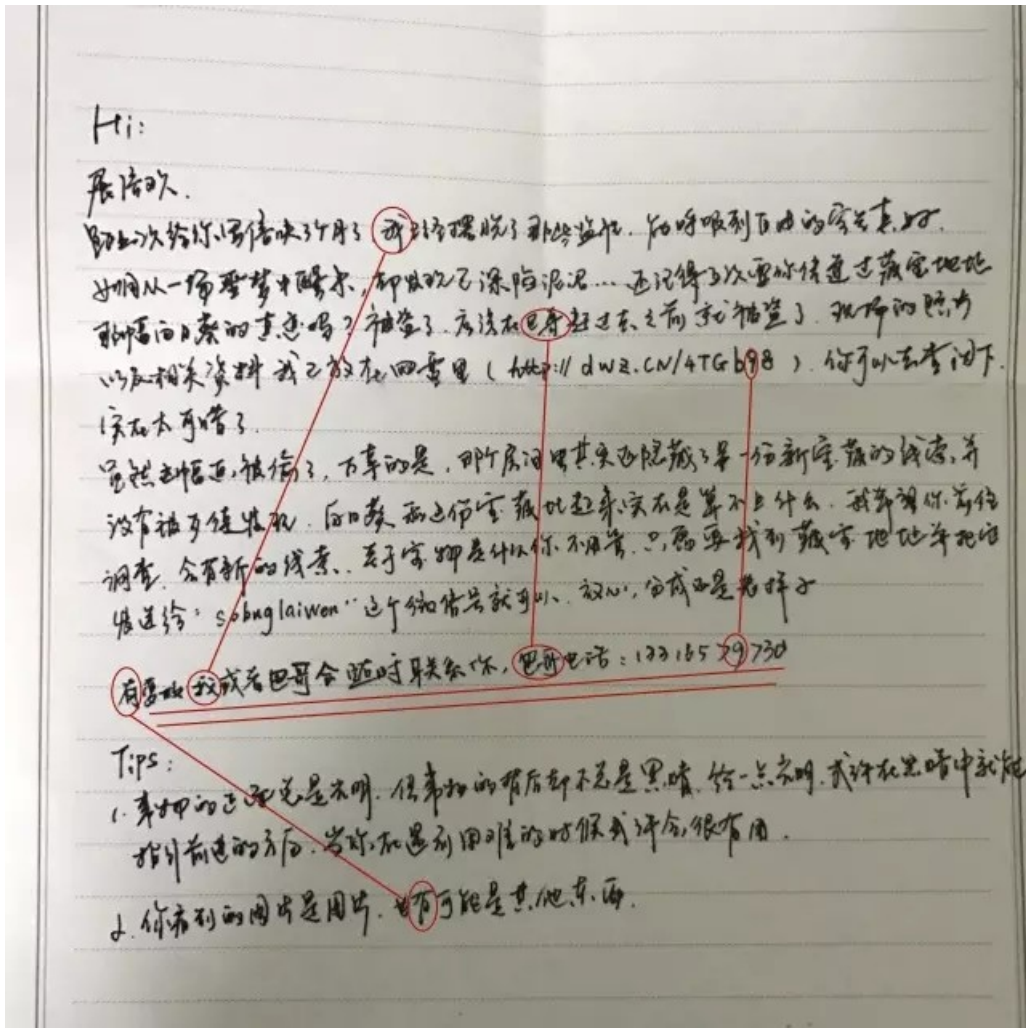 Hi:
展信欢.
距上次给你写信快3个月了 我已经摆脱了那些监视. 能呼吸到自由的空气真好.
如同从一场噩梦中醒来, 却发现已深陷泥沼… 还记得上次要你信通过藏宝地址
那幅向日葵的真迹吗? 被盗了. 应该在巴哥赶过去之前就被盗了. 现场的照片
以及相关资料 我已放在 里 ( http:// dwz.CN/4TGb98 ). 你可以去查阅下.
实在太可惜了.
虽然画作被偷了, 万幸的是, 那个房间里其实还隐藏了另一份新宝藏的线索, 并
没有被盗贼发现. 向日葵和这份宝藏比起来实在是算不上什么. 我希望你前往
调查. 会有新的线索. 至于宝物是什么你不用管. 只需要找到藏宝地址并把它
发送给: "sobuglaiwen" 这个微信号就可以. 放心, 分成还是老样子
有要时 我或者巴哥会随时联系你, 巴哥电话: 13316579730
Tips:
1. 事物的正面总是光明. 但事物的背后却不总是黑暗. 给一点光明. 或许在黑暗中就能
指引前进的方向. 当你在遇到困难的时候或许会很有用.
2. 你看到的图片是图片. 也有可能是其他东西.